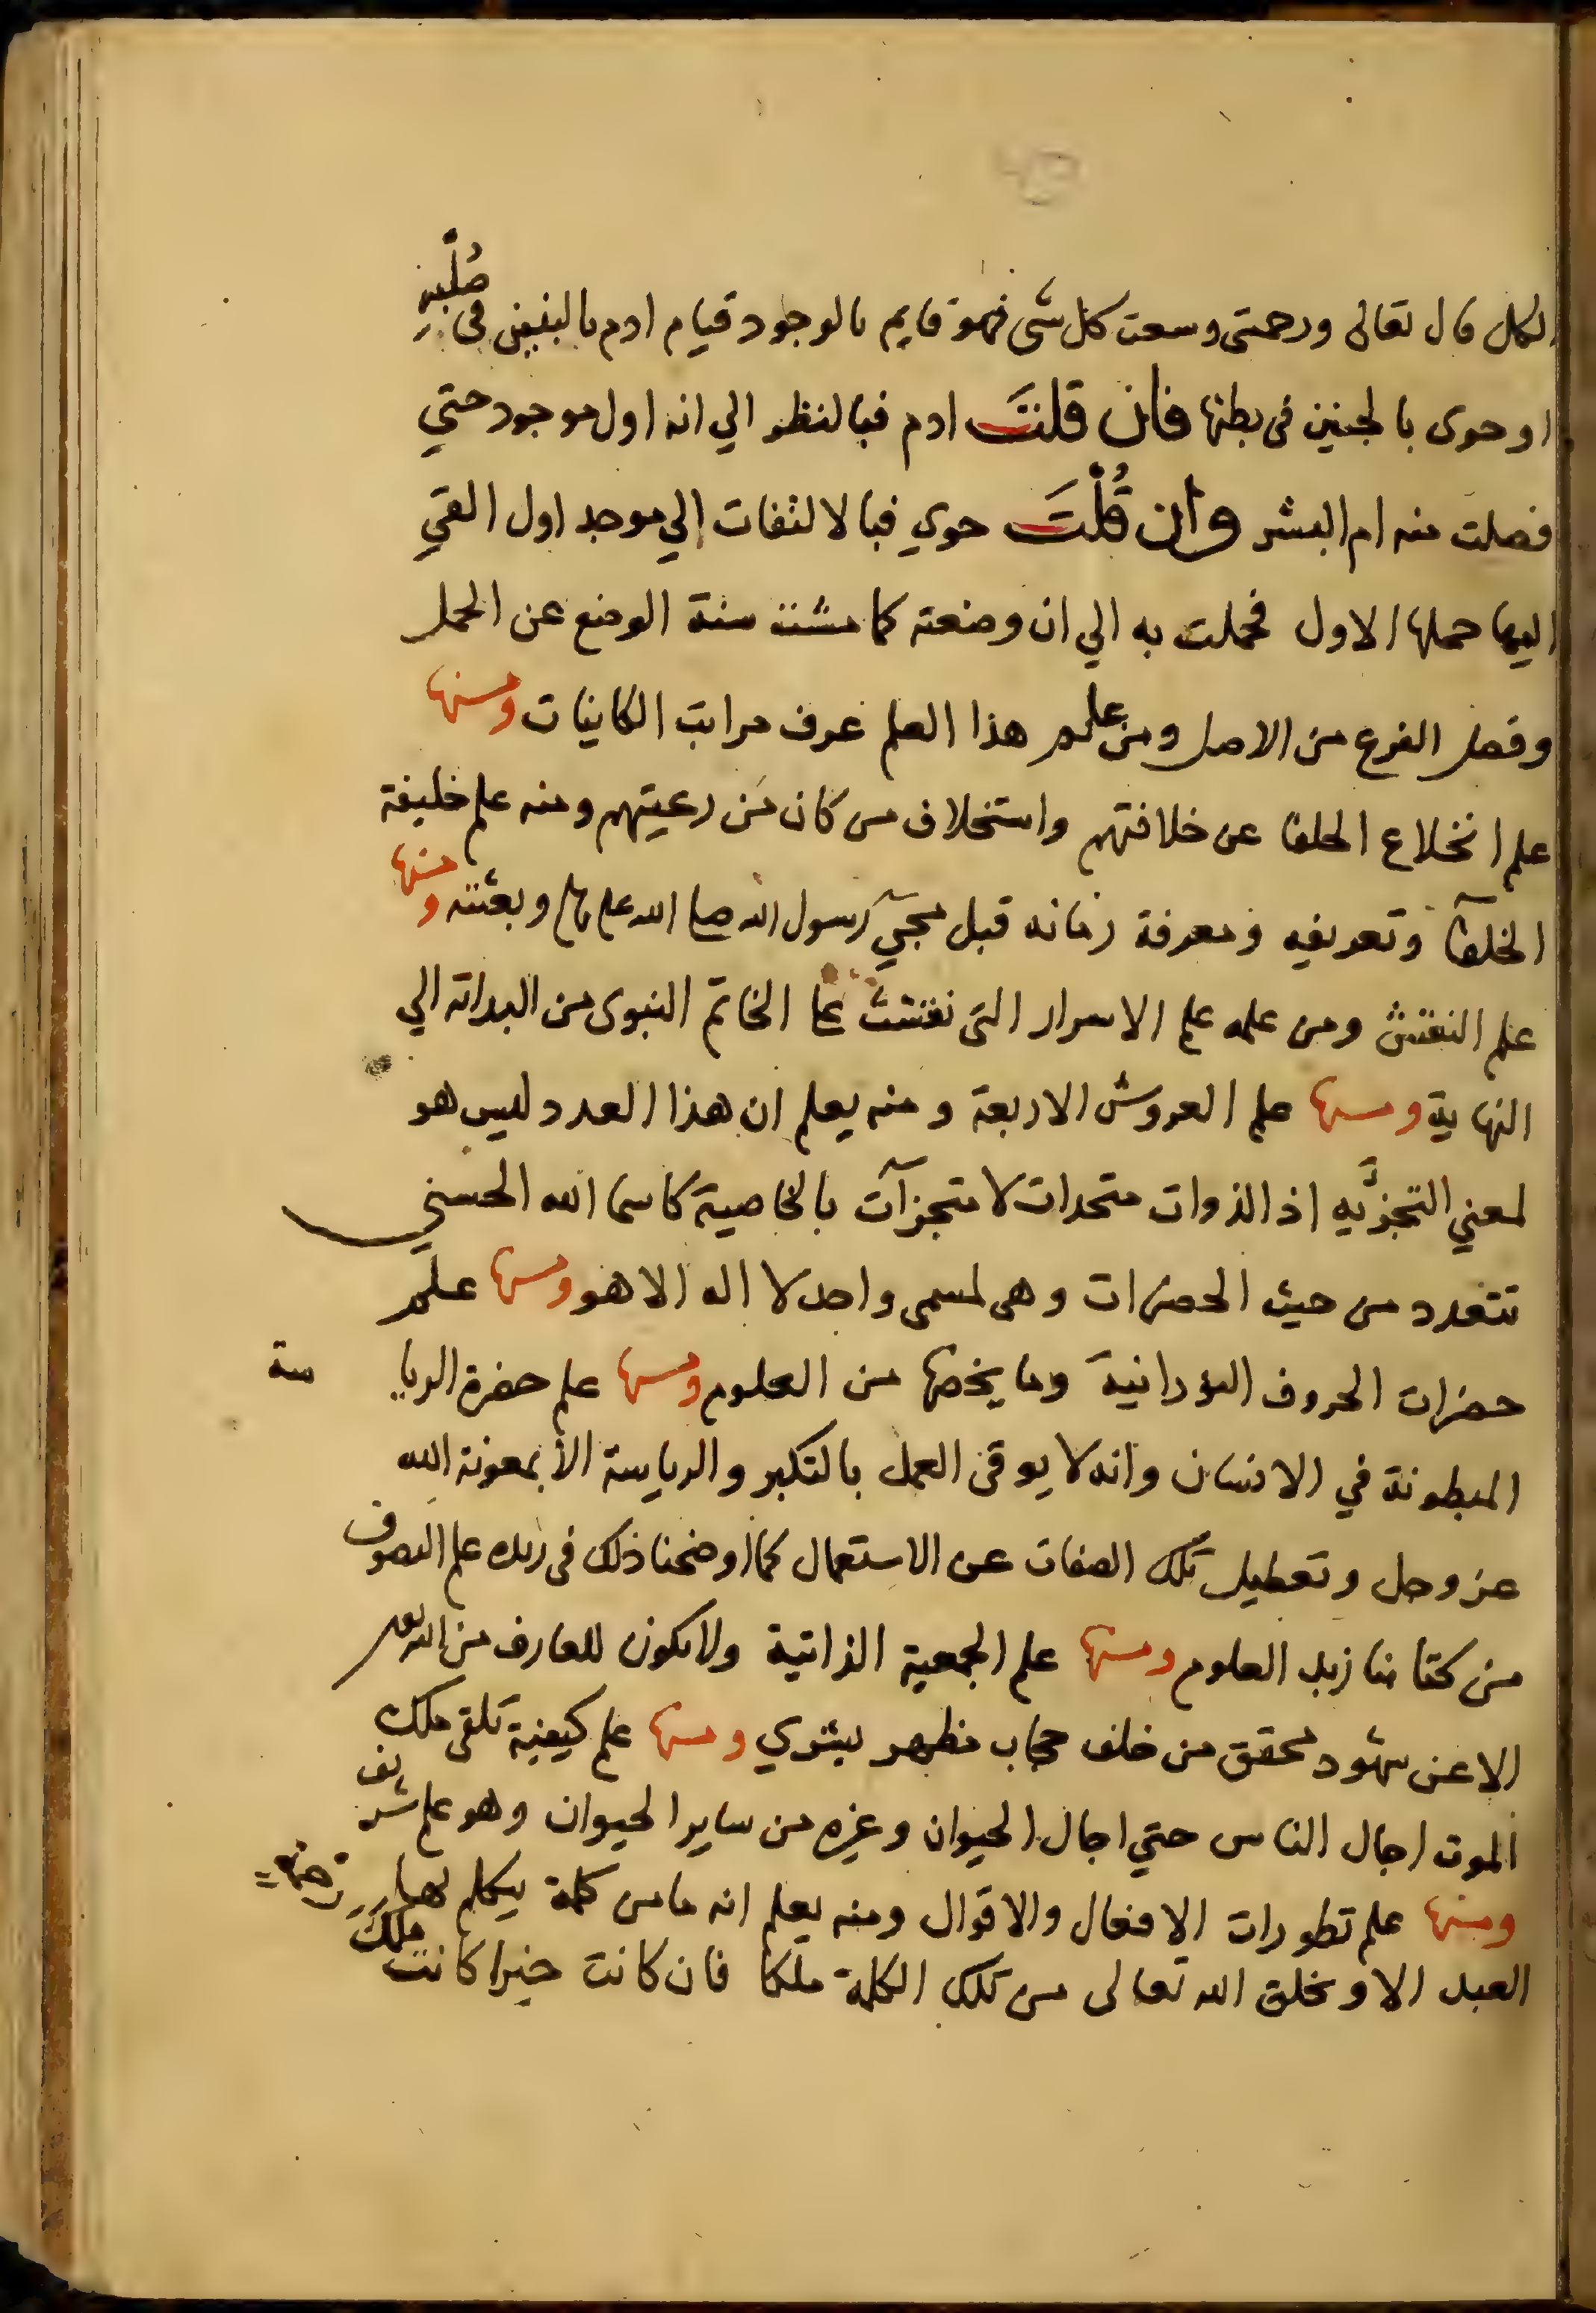 الكل قال تعالى ورحمتى وسعت كل شى فهو قايم بالوجود قيام ادم بالبنين فى صُلْبِهِ
او حوى بالجنين فى بطنها فان قلتَ ادم فبالنظر الي انه اول موجود حتي
فصلت منه ام البشر وان قُلْتَ حوي فبالالتفات الي موجد اول القي
اليها حملها الاول فحملت به الي ان وضعته كما مشت سنة الوضع عن الحمل
وفصل الفرع من الاصل ومن علم هذا العلم عرف مراتب الكاينات ومنها
علم انخلاع الخلفا عن خلافتهم واستخلاف من كان من رعيتهم ومنه علم خليفة
الخلفآ وتعريفه ومعرفة زمانه قبل مجيٓ رسول الله صلى الله عليه وسلم وبعثته ومنها
علم النقش ومن علمه علم الاسرار التى نقشت على الخاتم النبوى من البداية الي
النهاية ومنها علم العروش الاربعة ومنه يعلم ان هذا العدد ليس هو
لمعني التجزّيه اذ الذوات متحدات لا متجزآت بالخاصية كاسما الله الحسني
تتعدد من حيث الحضرات وهى لمسمى واحد لا اله الا هو ومنها علم
حضرات الحروف النورانية وما يخصها من العلوم ومنها علم حضرة الرياسة
المبطونة في الانسان وانه لا يوقى العمل بالتكبر والرياسة الا بمعونة الله
عز وجل وتعطيل تلك الصفات عن الاستعمال كما اوضحنا ذلك فى زبده علم التصوف
من كتابنا زبد العلوم ومنها علم الجمعية الذاتية ولا يكون للعارف من الله تعالى
الا عن شهود محقق من خلف حجاب مظهر بشري ومنها علم كيفية تلقى ملك
الموت اجال الناس حتي اجال الحيوان وغيره من ساير الحيوان وهو علم شريف
ومنها علم تطورات الافعال والاقوال ومنه يعلم انه ما من كلمة يتكلم بها
العبد الا ويخلق الله تعالى من تلك الكلمة ملكا فان كانت خيرا كانت ملكَ
رحمة